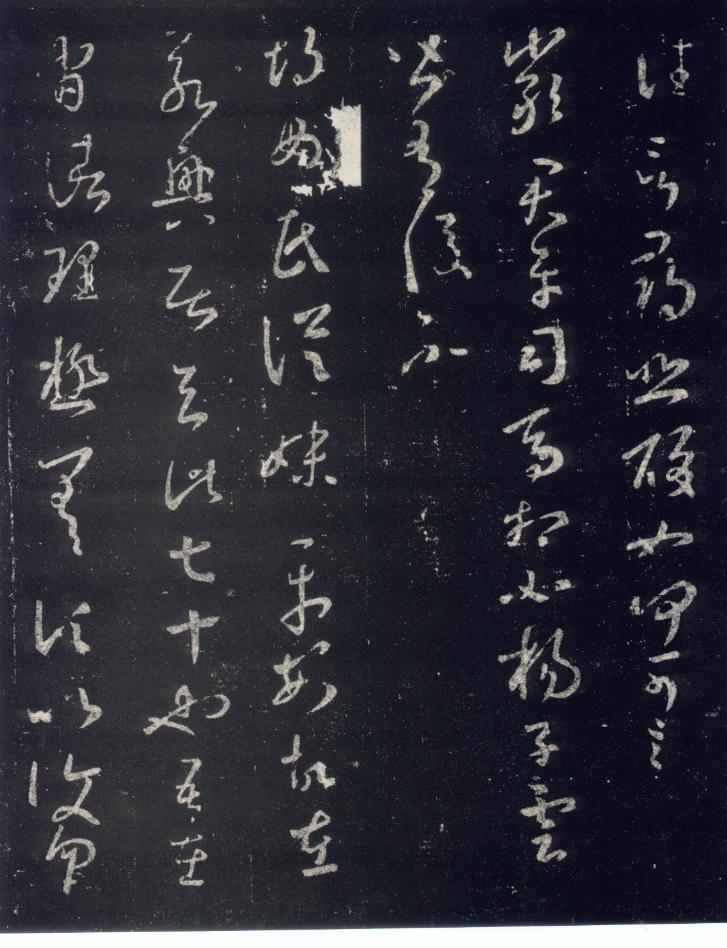 尋悲酸如何可言
嚴君平司馬相如楊子雲
皆有後不
胡母氏從妹平安故在
永興居去此七十也吾在
官諸理極差頃比復勿